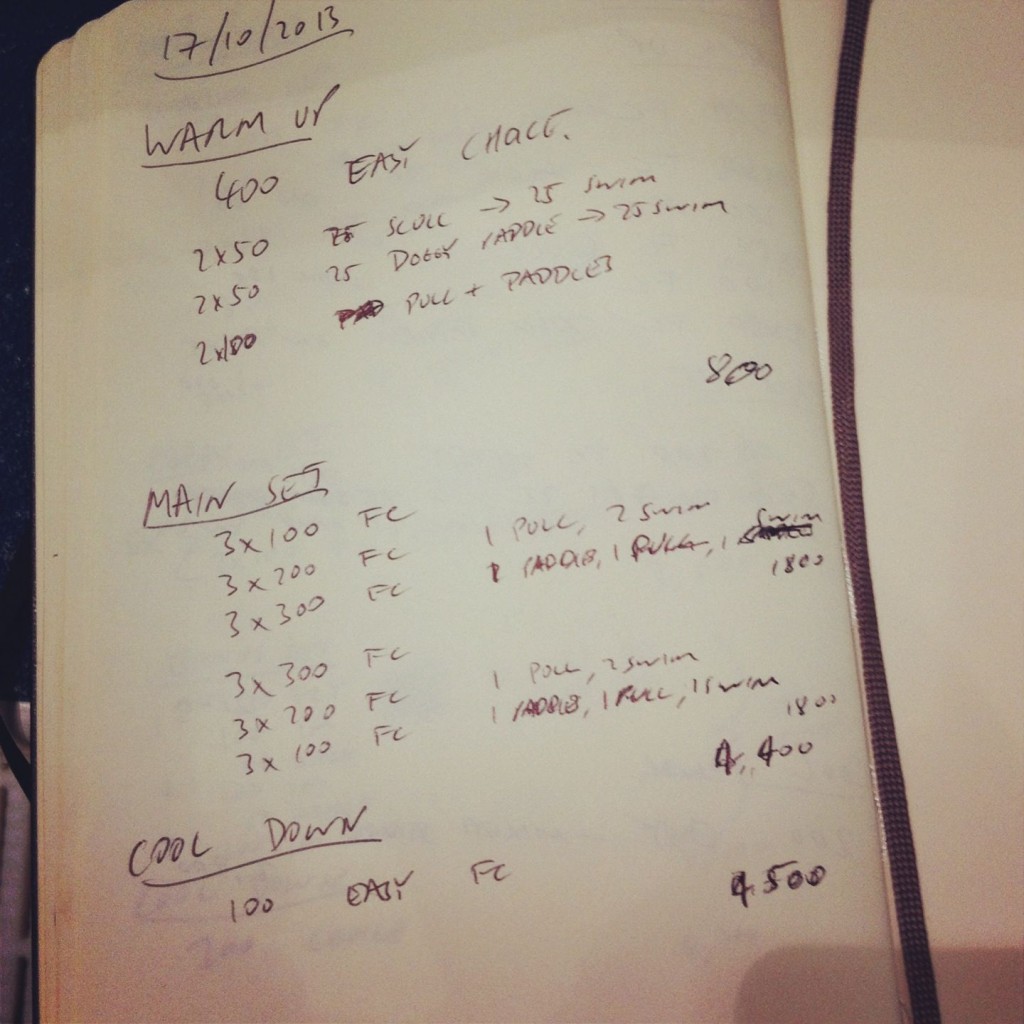 17/10/2013
WARM UP
400 EASY CHOICE.
2x50 25 SCULL → 25 SWIM
2x50 25 DOGGY PADDLE → 25 SWIM
2x100 PULL + PADDLES
800
MAIN SET
3x100 FC
3x200 FC 1 PULL, 2 SWIM
3x300 FC 1 PADDLES, 1 PULL, 1 SWIM
1800
3x300 FC
3x200 FC 1 PULL, 2 SWIM
3x100 FC 1 PADDLES, 1 PULL, 1 SWIM
1800
4,400
COOL DOWN
100 EASY FC
4,500